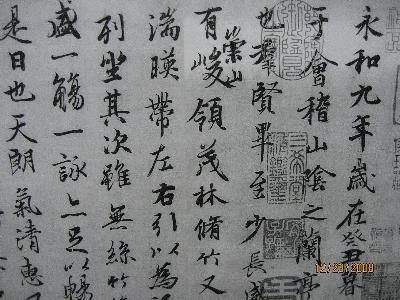 永和九年歲在癸丑暮
于會稽山陰之蘭亭
也羣賢畢至少長咸
有崇山峻領茂林脩竹又
湍暎帶左右引以為流
列坐其次雖無絲竹管
盛一觴一詠亦足以暢
是日也天朗氣清惠風